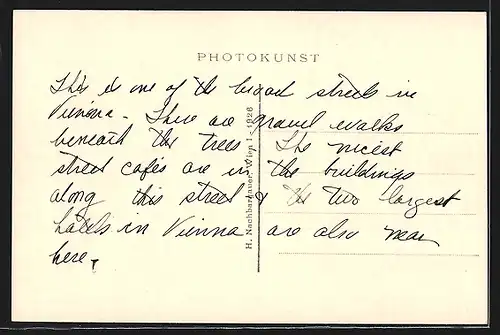 PHOTOKUNST
This is one of the broad streets in
Vienna. There are gravel walks
beneath the trees, The nicest
street cafés are in the buildings
along this street & the two largest
hotels in Vienna are also near
here.
H. Nachbargauer, Wien I - 1926